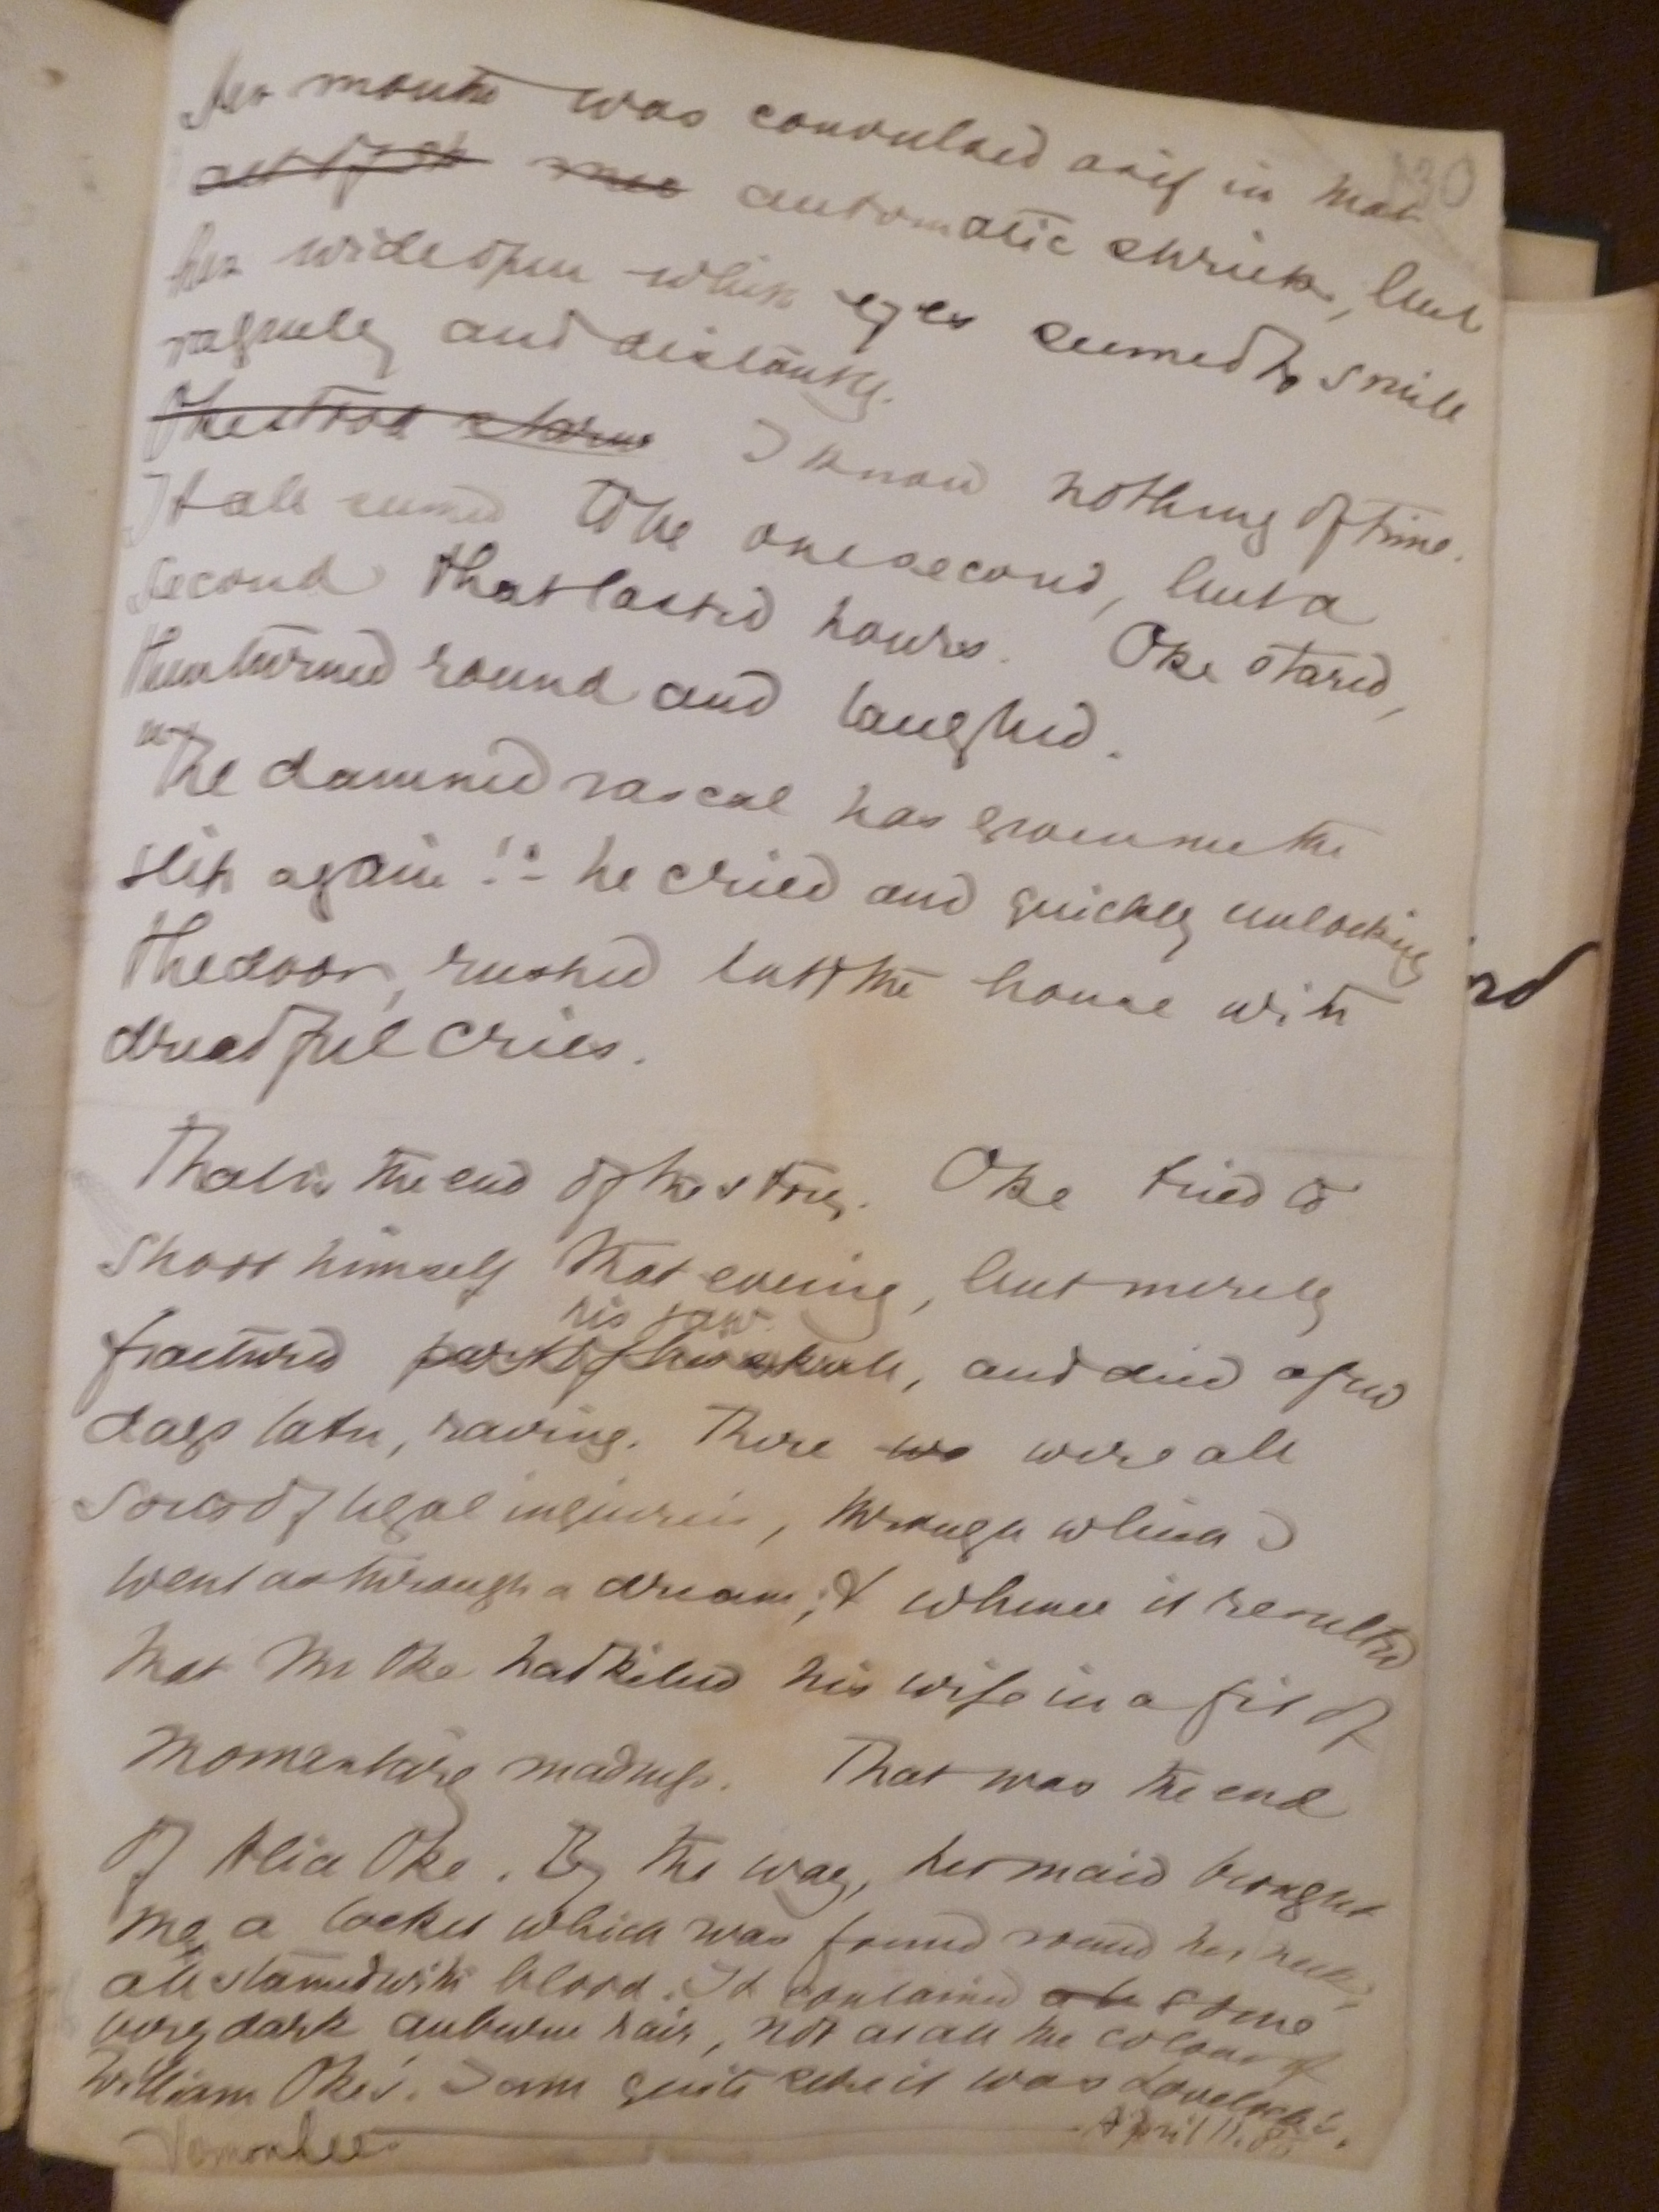 130
Her mouth was convulsed as if in that
act of automatic shriek, but
her wide open white eyes seemed to smile
vaguely and distantly.
Oke stood I know nothing of time.
It all seemed to be one second, but a
second that lasted hours. Oke stared,
then turned round and laughed.
"The damned rascal has given me the
slip again!" he cried and quickly unlocking
the door, rushed out of the house with
dreadful cries.
That is the end of the story. Oke tried to
shoot himself that evening, but merely
his jaw
fractured part of his skull, and died a few
days later, raving. There wa were all
sorts of legal inquiries, through which I
went as through a dream; & whence it resulted
that Mr Oke had killed his wife in a fit of
momentary madness. That was the end
of Alice Oke. By the way, her maid brought
me a locket which was found round her neck,
all stained with blood. It contained some
very dark auburn hair, not at all the colour of
William Oke's. I am quite sure it was Lovelock's.
April 11. 85
Vernon Lee
rd